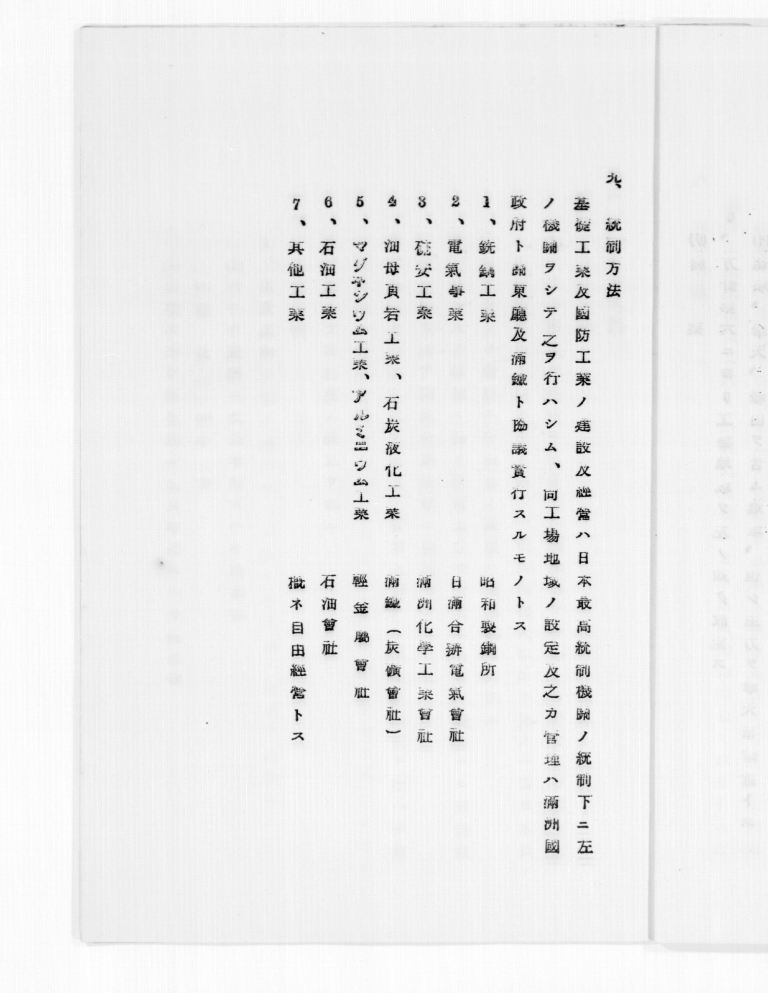 九、統制方法
基礎工業及國防工業ノ建設及經營ハ日本最高統制機關ノ統制下ニ左
ノ機關ヲシテ之ヲ行ハシム、同工場地域ノ設定及之カ管理ハ滿洲國
政府ト關東廳及滿鐵ト協議實行スルモノトス
1、銑鋼工業 昭和製鋼所
2、電氣事業 日滿合辦電氣會社
3、硫安工業 滿洲化學工業會社
4、油母頁岩工業、石炭液化工業 滿鐵(炭礦會社)
5、マグネシウム工業、アルミニウム工業 輕金屬會社
6、石油工業 石油會社
7、其他工業 概ネ自由經營トス